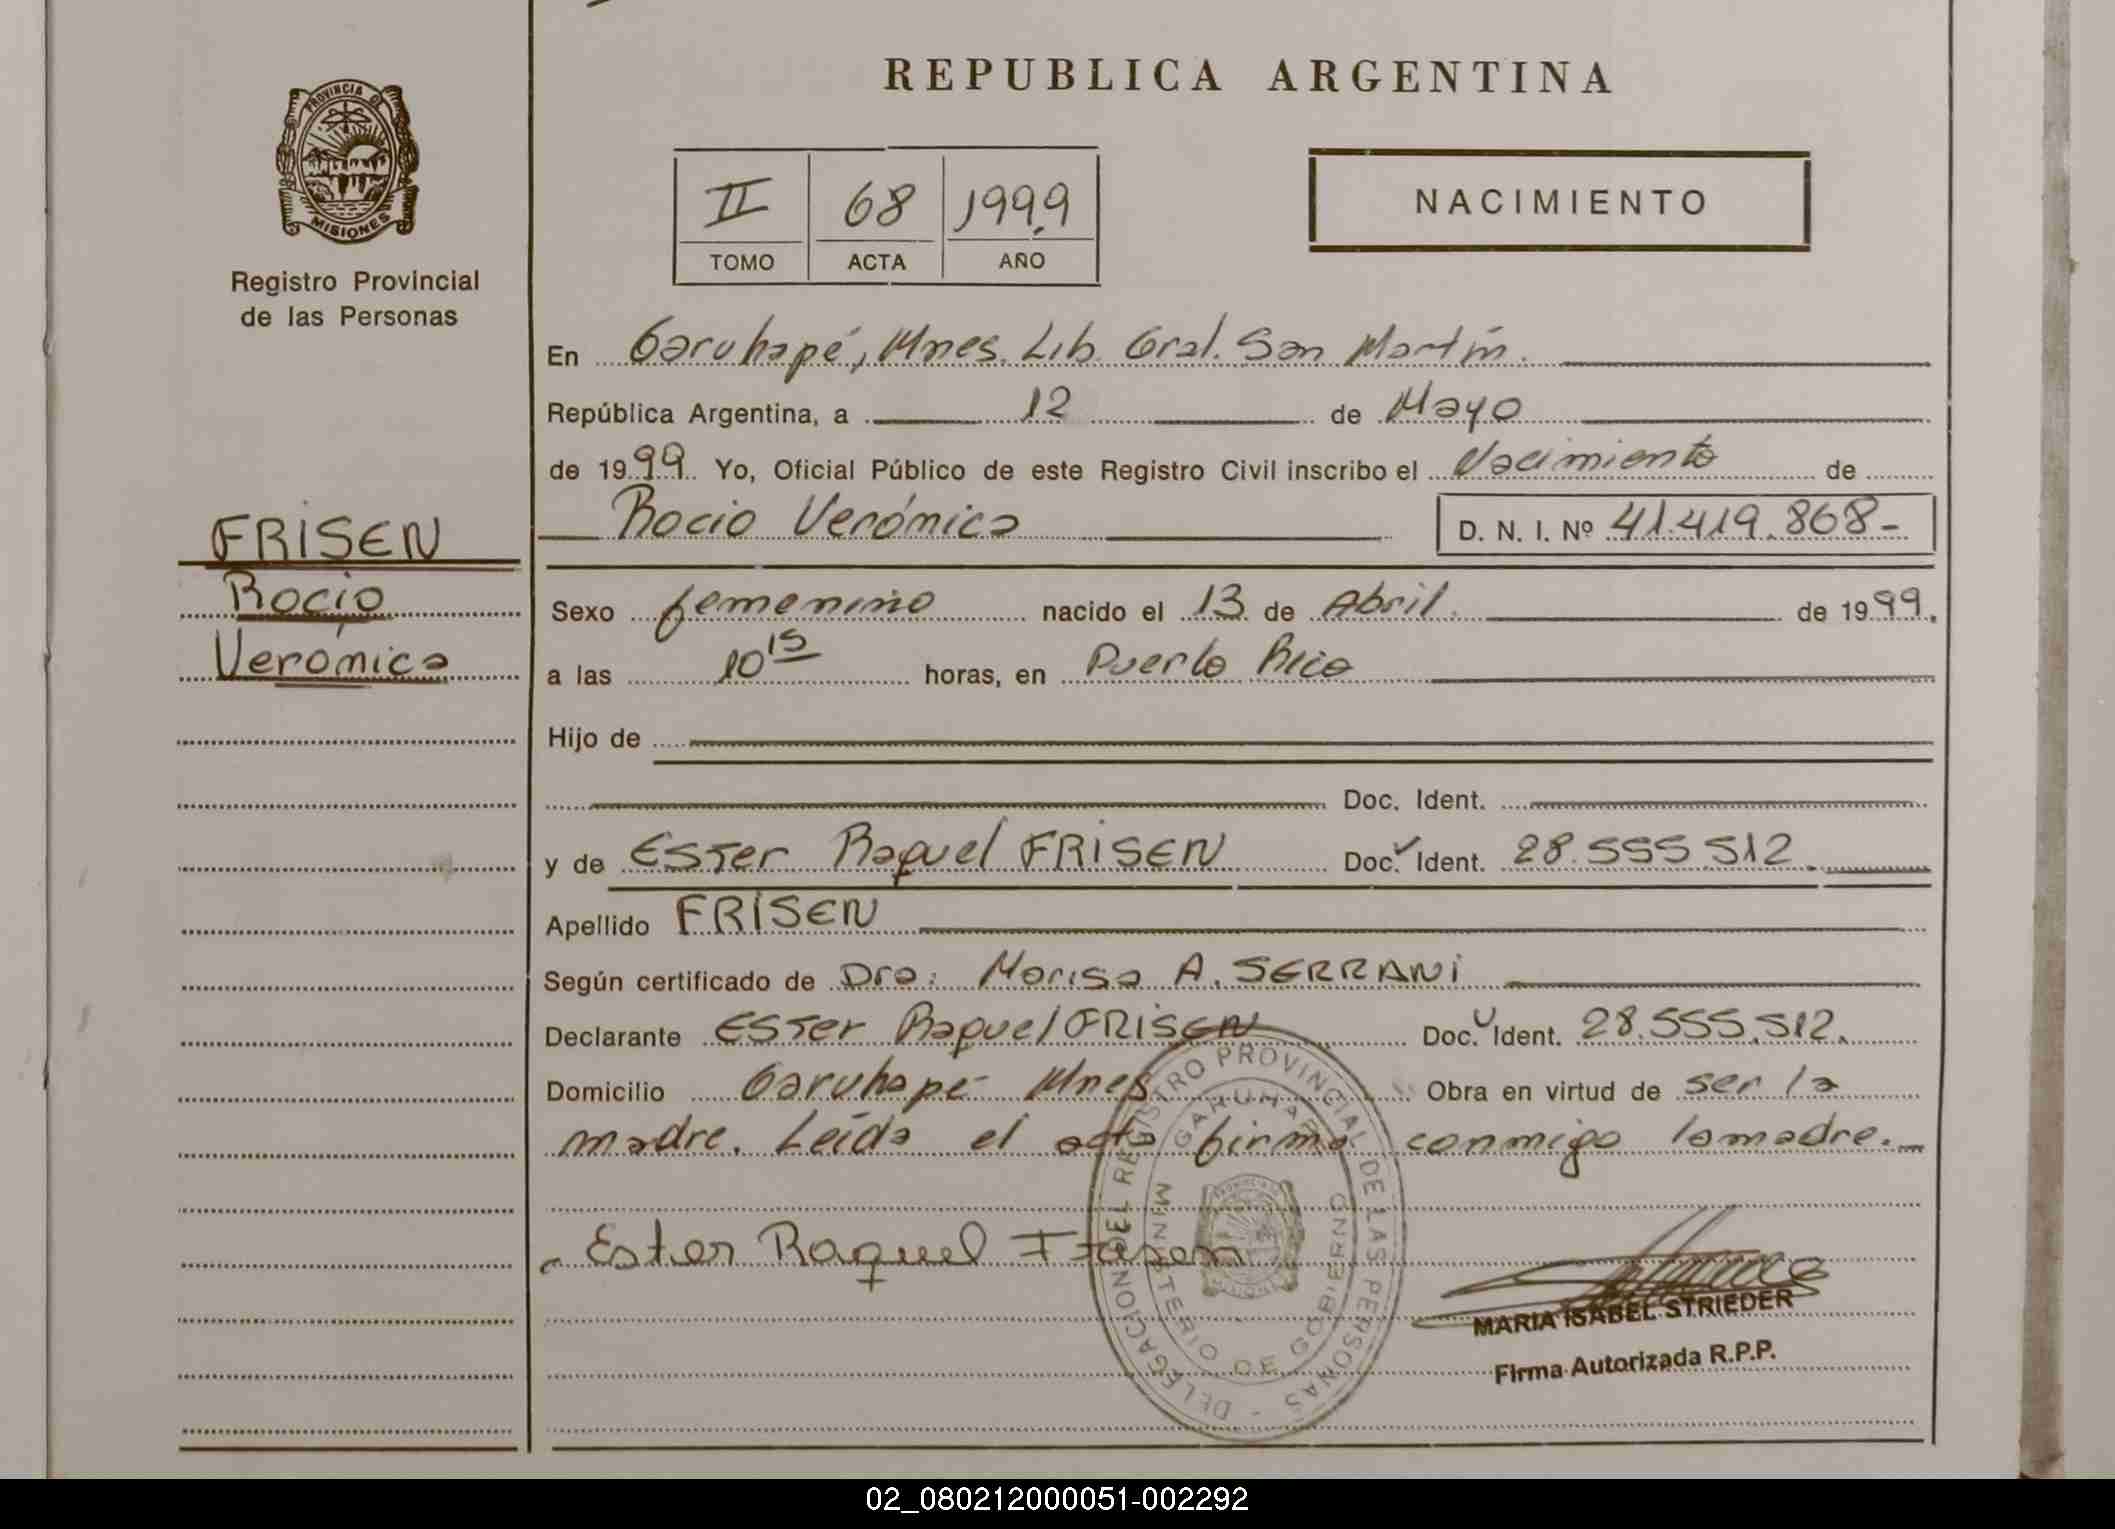 REPUBLICA ARGENTINA
PROVINCIA DE
MISIONES
Registro Provincial
de las Personas
II 68 1999
TOMO ACTA AÑO
NACIMIENTO
En Garuhapé, Mnes. Lib. Gral. San Martín.
República Argentina, a 12 de Mayo
de 1999. Yo, Oficial Público de este Registro Civil inscribo el Nacimiento de
Rocio Verónica D. N. I. Nº 41.419.868-
FRISEN
Rocio
Verónica
Sexo femenino nacido el 13 de Abril. de 1999.
a las 10 15 horas, en Puerto Rico
Hijo de
Doc. Ident.
y de Ester Raquel FRISEN Doc. Ident. 28.555.512.
Apellido FRISEN
Según certificado de Dra: Marisa A. SERRANI
Declarante Ester Raquel FRISEN Doc. U Ident. 28.555.512.
Domicilio Garuhapé Mnes Obra en virtud de ser la
madre. Leída el acta firma conmigo la madre.
Ester Raquel Frisen
DELEGACION DEL REGISTRO PROVINCIAL DE LAS PERSONAS -
GARUHAPE
MINISTERIO DE GOBIERNO
MARIA ISABEL STRIEDER
Firma Autorizada R.P.P.
02_080212000051-002292